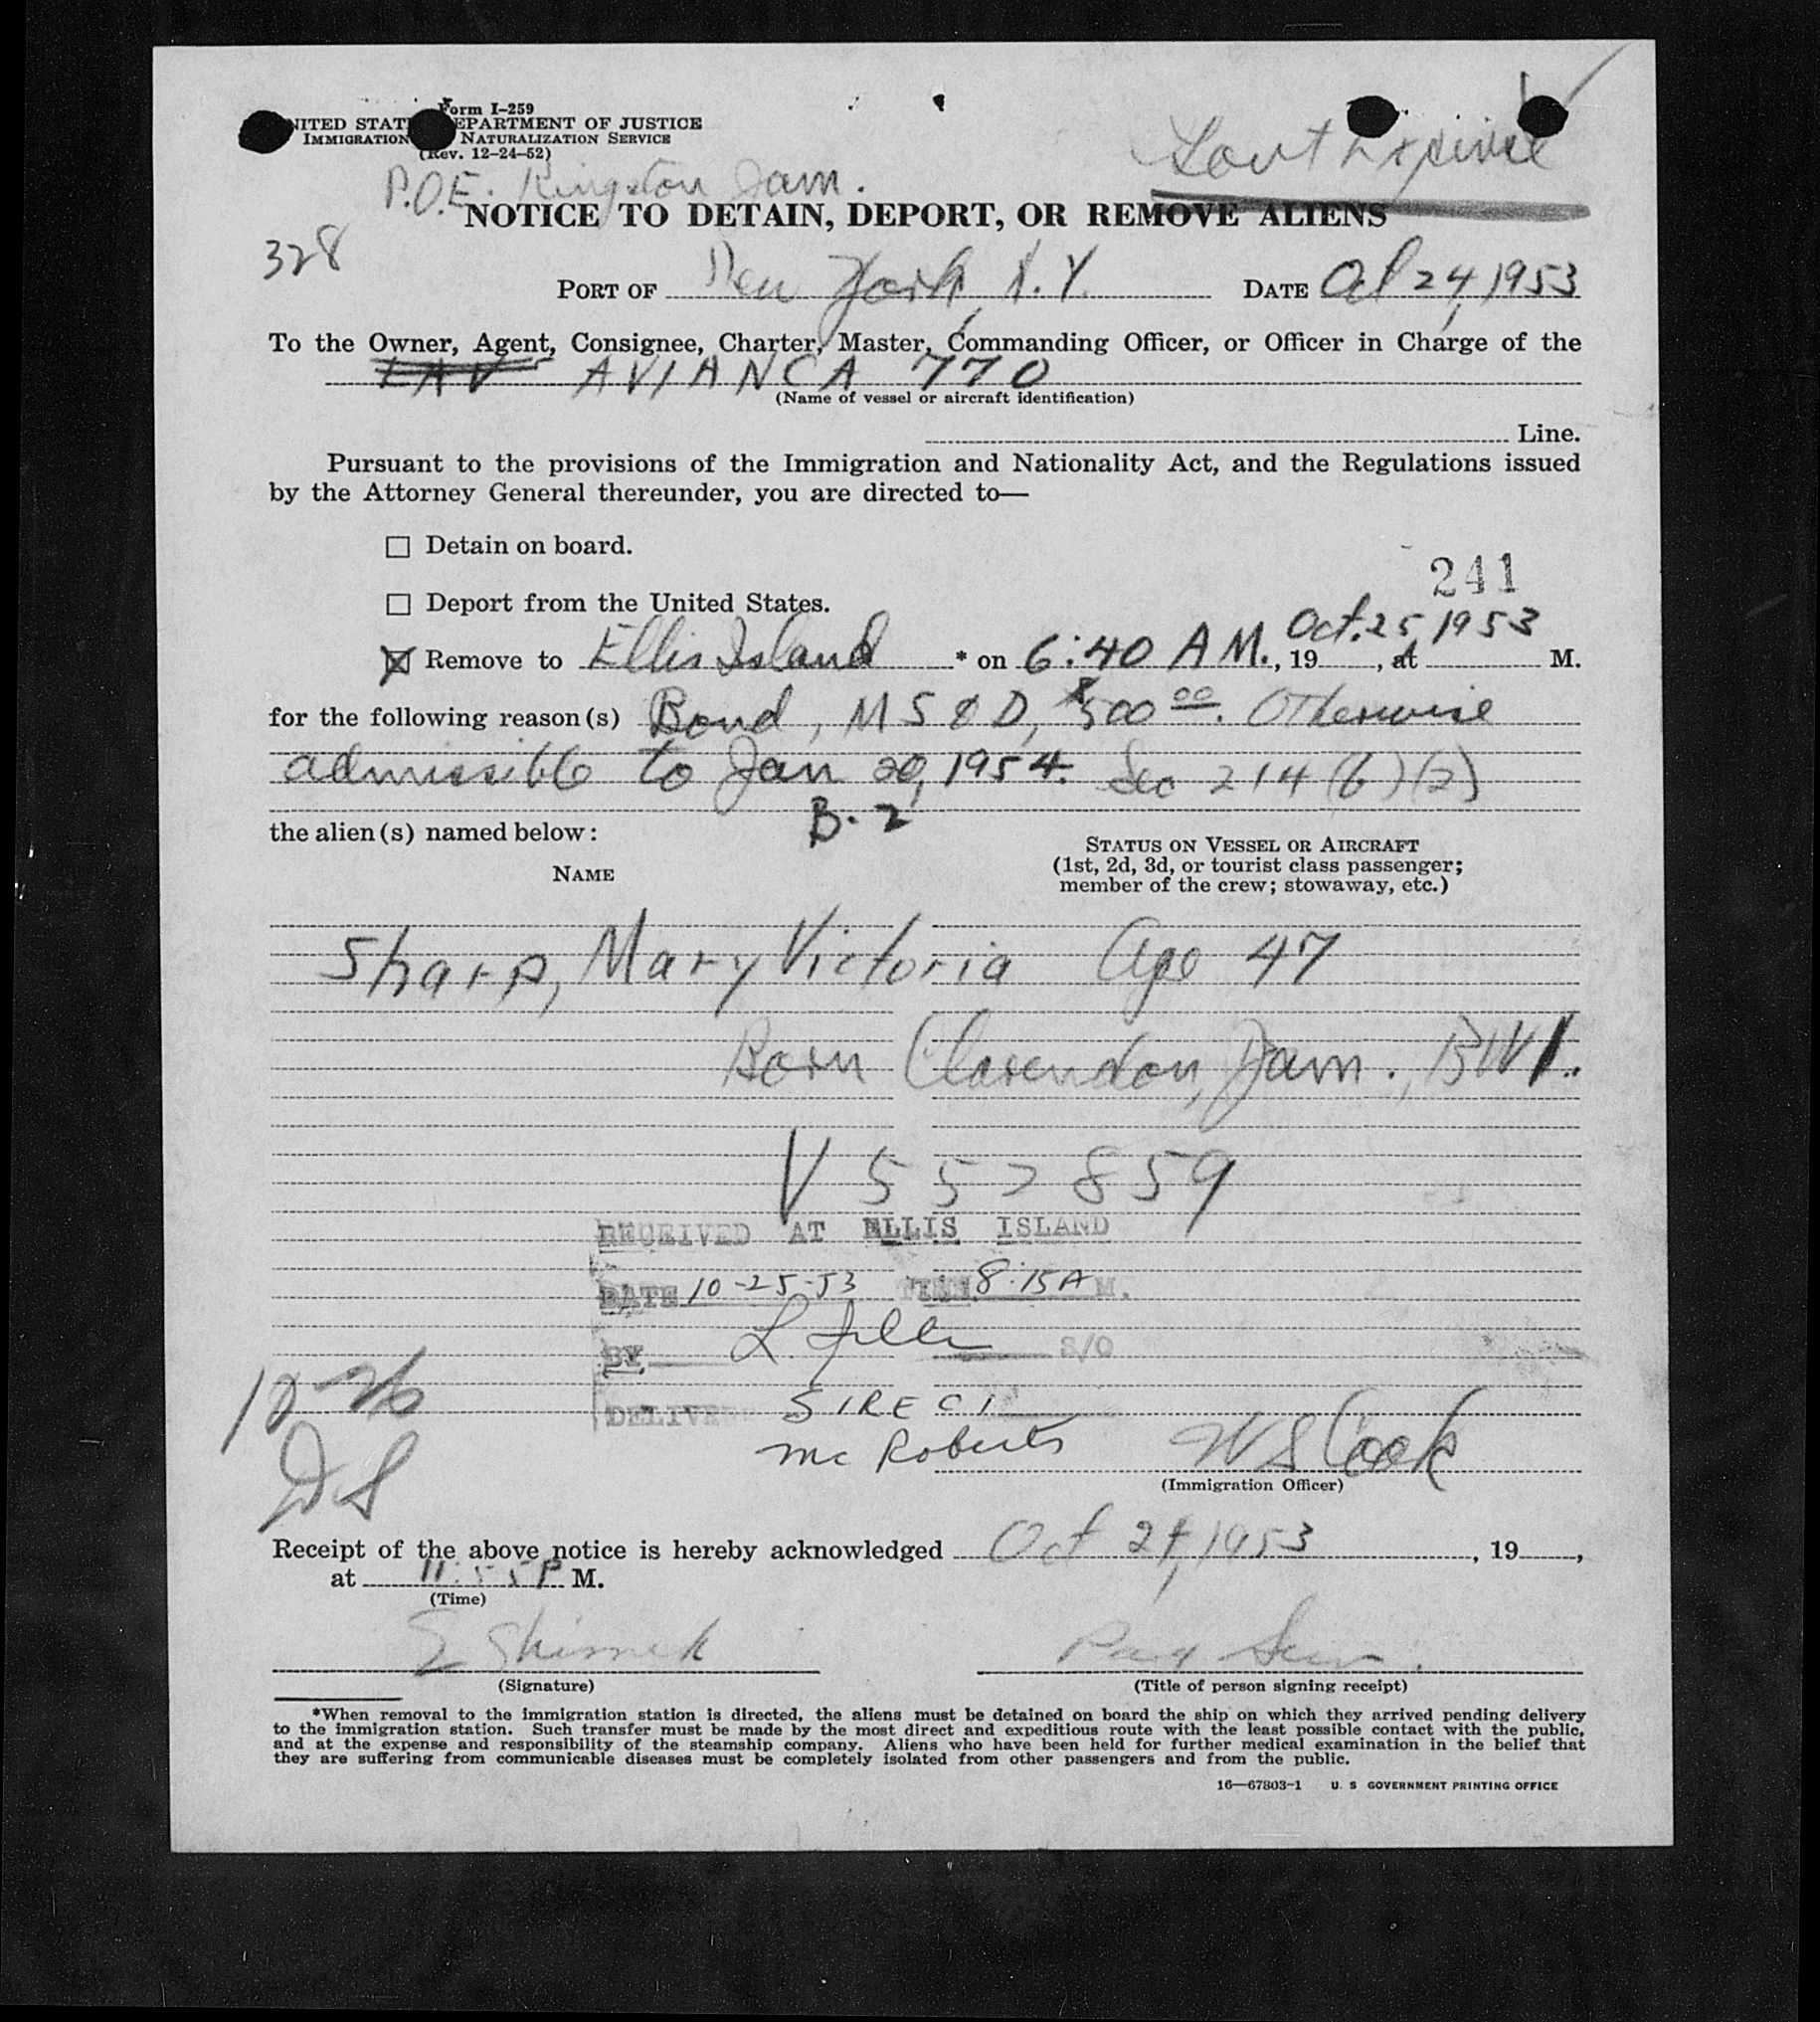 Form I-259
UNITED STATES DEPARTMENT OF JUSTICE
IMMIGRATION NATURALIZATION SERVICE
(Rev. 12-24-52)
Gov't Expense
P.O.E. Kingston Jam.
NOTICE TO DETAIN, DEPORT, OR REMOVE ALIENS
328
PORT OF New York, N.Y. DATE Oct 24, 1953
To the Owner, Agent, Consignee, Charter, Master, Commanding Officer, or Officer in Charge of the
LAV AVIANCA 770
(Name of vessel or aircraft identification)
Line.
Pursuant to the provisions of the Immigration and Nationality Act, and the Regulations issued
by the Attorney General thereunder, you are directed to—
Detain on board.
241
Deport from the United States.
Oct. 25, 1953
Remove to Ellis Island * on 6:40 AM., 19 , at M.
for the following reason(s) Bond, MS&D, $500 00. Otherwise
admissible to Jan 20, 1954. Sec 214 (b)(2)
B-2
the alien(s) named below:
STATUS ON VESSEL OR AIRCRAFT
NAME
(1st, 2d, 3d, or tourist class passenger;
member of the crew; stowaway, etc.)
Sharp, Mary Victoria Age 47
Born Clarendon, Jam., BWI.
V 557859
RECEIVED AT ELLIS ISLAND
DATE 10-25-53 TIME 8:15 A M.
BY L. S/O
10-26
DELIVE SIRECI
DS
Mc Roberts W S Cook
(Immigration Officer)
Receipt of the above notice is hereby acknowledged Oct 24, 1953, 19 ,
at 11:55 P M.
(Time)
(Signature) (Title of person signing receipt)
*When removal to the immigration station is directed, the aliens must be detained on board the ship on which they arrived pending delivery
to the immigration station. Such transfer must be made by the most direct and expeditious route with the least possible contact with the public,
and at the expense and responsibility of the steamship company. Aliens who have been held for further medical examination in the belief that
they are suffering from communicable diseases must be completely isolated from other passengers and from the public.
16—67803-1 U. S GOVERNMENT PRINTING OFFICE